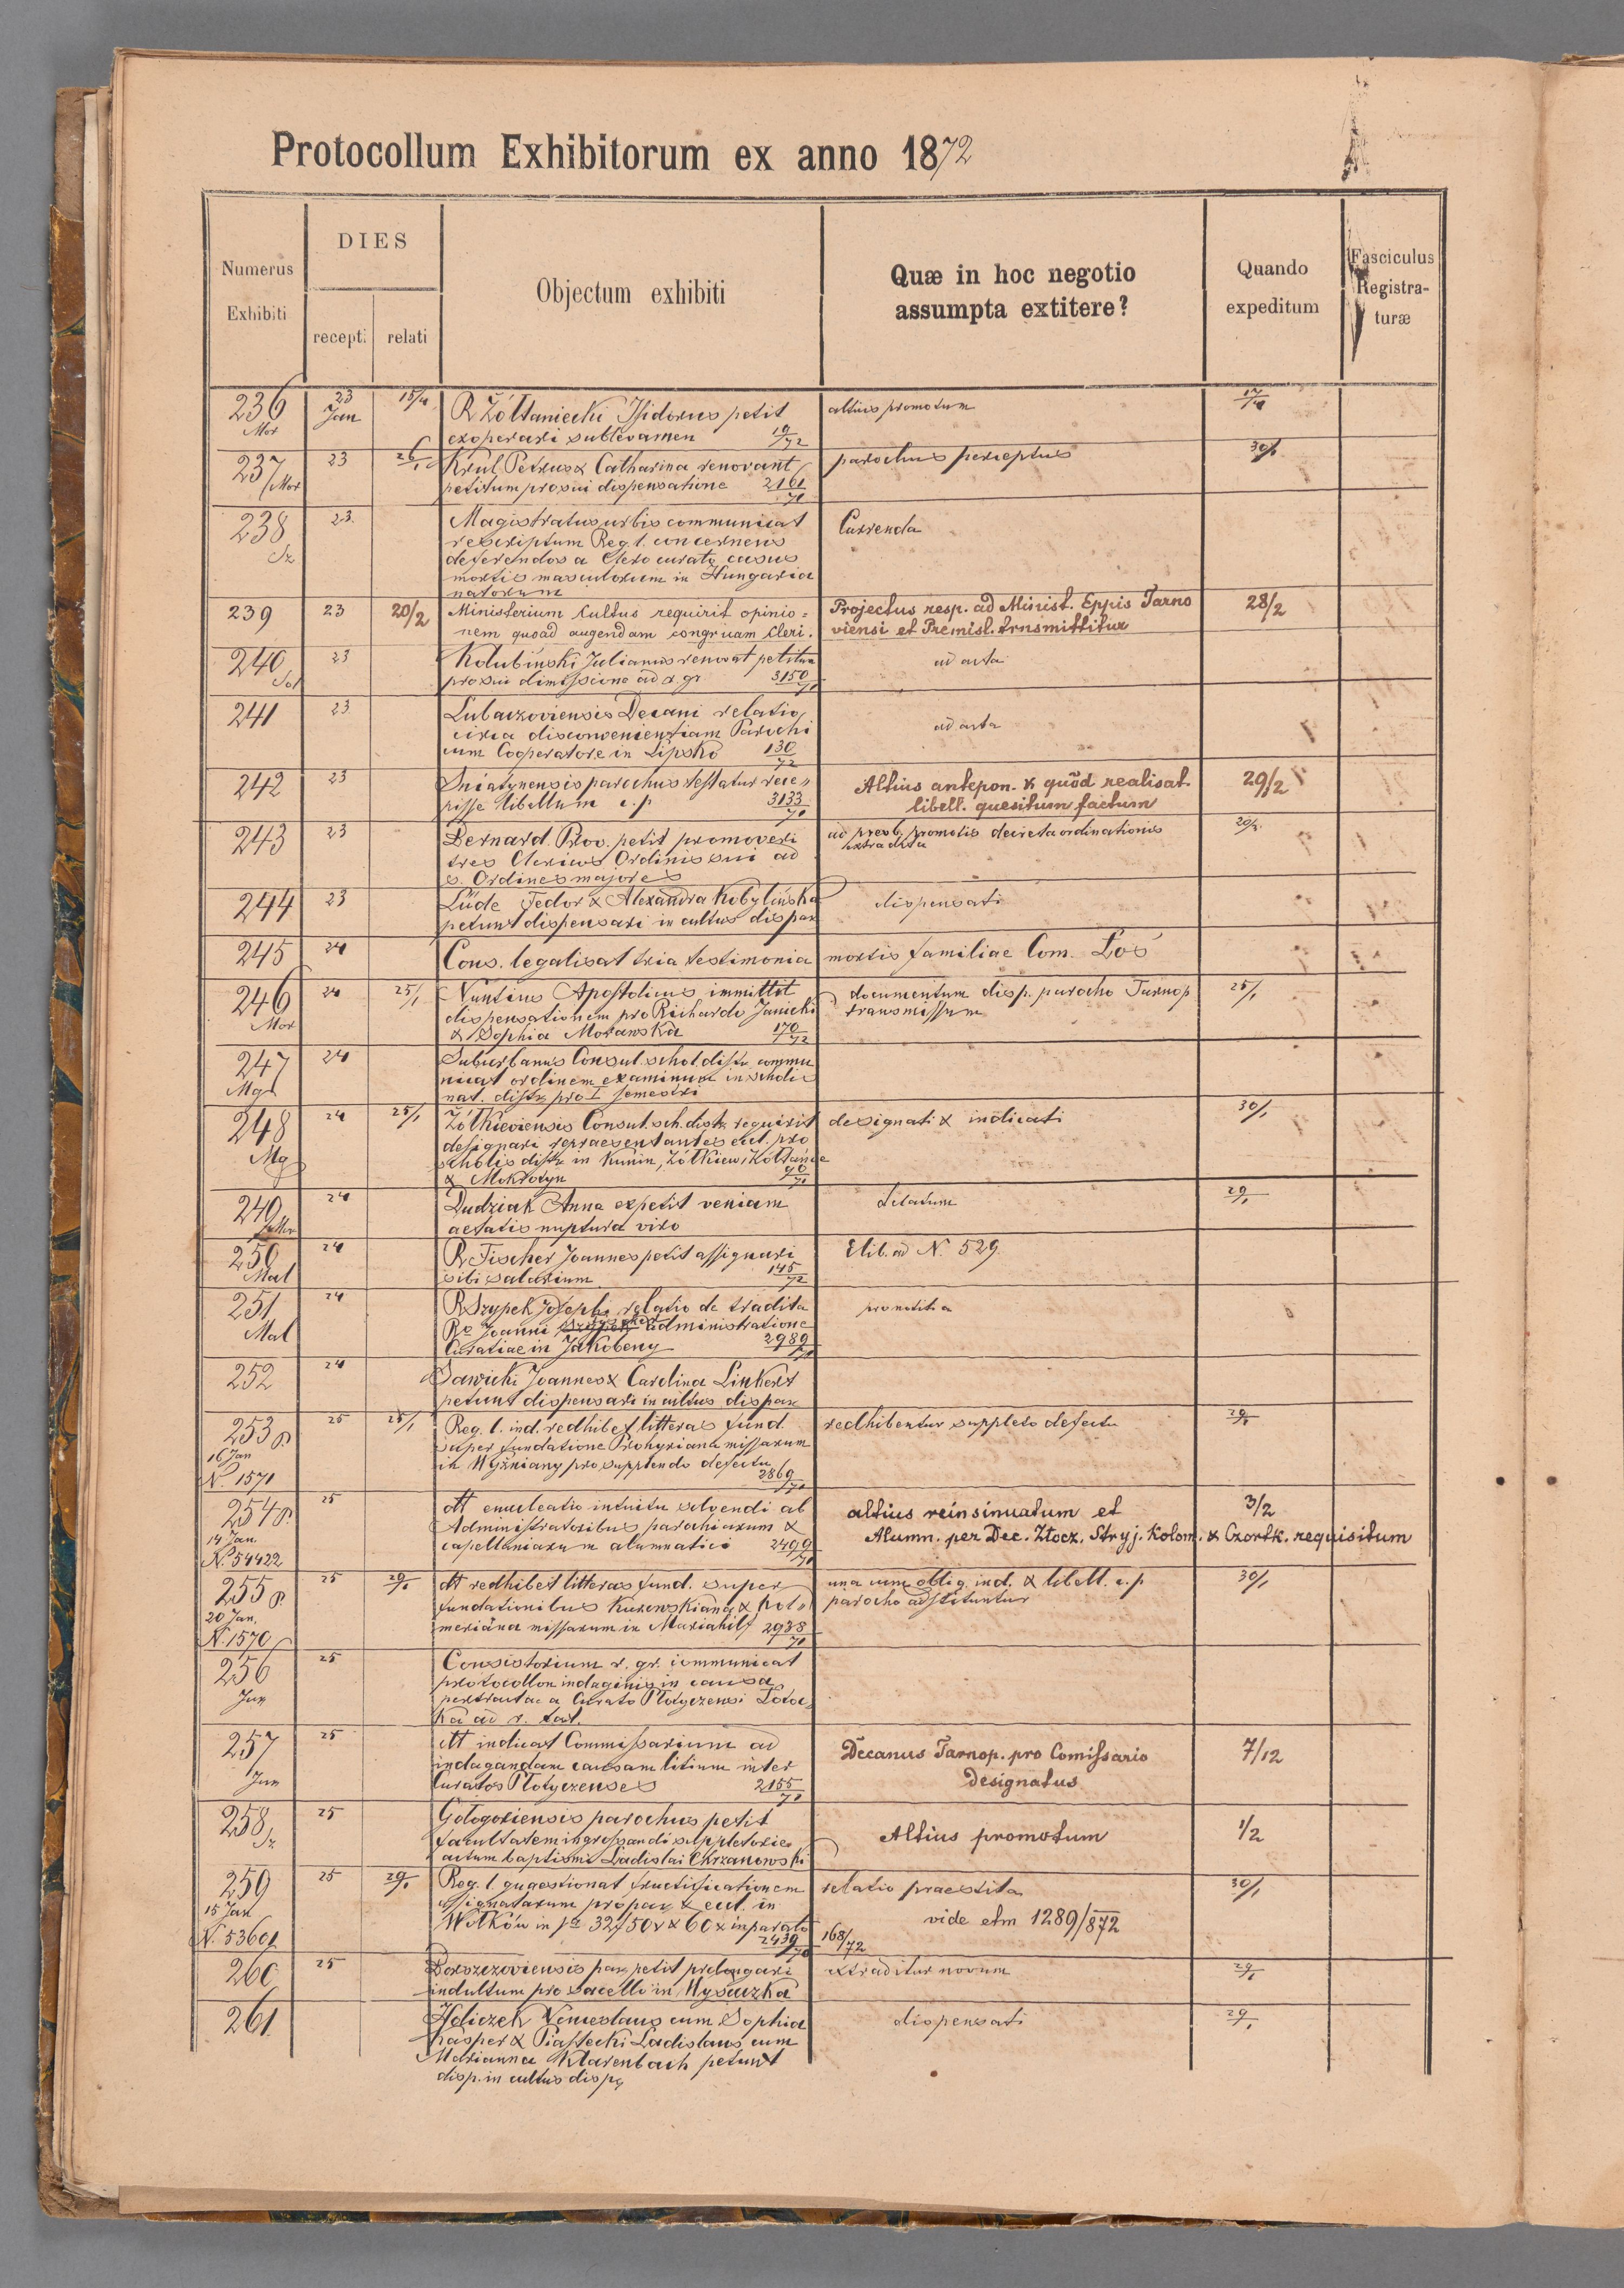 Protocollum Exhibitorum ex anno 1872
Numerus Exhibiti
DIES
recepti
relati
Objectum exhibiti
Quæ in hoc negotio assumpta extitere?
Quando expeditum
Fasciculus Registra-turæ
236 23 15/4 R Żółtaniecki Isidorus petit altius promotum 17/4
Mor Jan exoperari sublevamen 19/72
237 23 26/1 Król Petrus & Catharina renovant parochus perceptus 30/1
Mor petitum pro sui dispensatione 2161/71
238 23 Magistratus urbis communicat Currenda
Sz rescriptum Reg. l. concernens
deferendos a Clero curato casus
mortis masculorum in Hungaria
natorum
239 23 20/2 Ministerium Cultus requirit opinio= Projectus resp. ad Minist. Eppis Tarno 28/2
nem quoad augendam congruam Cleri. viensi et Premisl. trnsmittitur
240 23 Kolubiński Julianus renovat petitum ad acta
pro sui dimissione ad r. gr 3150/71
241 23 Lubaczoviensis Decani relatio ad acta
circa disconvenientiam Parochi
cum Cooperatore in Lipsko 130/72
242 23 Sniatynensis parochus testatur rece= Altius antepon. & quod realisat. 29/2
pisse libellum c.p 3133/71 libell. quesitum factum
243 23 Bernard. Prov. petit promoveri ad presb. promotis decreta ordinationis 20/2
tres Clericos Ordinis sui ad extradita
s. Ordines majores
244 23 Lüde Fedor & Alexandra Kobylińska dispensati
petunt dispensari in cultus dispar
245 24 Cons. legalisat tria testimonia mortis familiae Com. Łoś
246 24 25/1 Nuntius Apostolicus immittit documentum disp. parocho Tarnop 25/1
Mor dispensationem pro Richardo Janicki transmissum
& Sophia Morawska 170/72
247 24 Suburbanus Consul. schol. distr. commu
nicat ordinem examinum in scholis
nat. distr. pro I semestri
248 24 25/1 Żółkieviensis Consul. sch. distr. requirit designati & indicati 30/1
Mg designari repraesentantes eccl. pro
scholis distr. in Kunin, Żółkiew,
& Mokrotyn 90/71
249 24 Dudziak Anna expetit veniam delatum 29/1
aetatis nuptura viro
250 24 R Fischer Joannes petit assignari Elib. ad N. 529.
Mal sibi salarium 145/72
251 24 R Szypek Joseph. relatio de tradita pronotitia
Mal Ro Joanni administratione
Curatiae in Jakobeny 2989/71
252 24 Sawicki Joannes & Carolina Linkert
petunt dispensari in cultus dispar
253 P 25 25/1 Reg. l. ind. redhibet litteras fund. redhibentur suppleto defectu 29/1
16 Jan super fundatione Prohyriana missarum
N. 1571 in Wyżniany pro supplendo defectu 2869/71
254 P. 25 At enucleatio intuitu solvendi ab altius reinsinuatum et 3/2
14 Jan. Administratoribus parochiarum & Alumn. per Dec. Złocz. Stryj. Kolom. & Czortk. requisitum
N. 54422 capellaniarum alumnatici 2499/71
255 P. 25 29/1 At redhibet litteras fund. super una cum oblig. ind. & libell. c.p 30/1
20 Jan. fundationibus Kurowskiana & Hol= parocho adstituntur
N. 1570 meriana missarum in Mariahilf 2938/71
256 25 Consistorium r. gr. communicat
Jun protocollon indaginis in causa
pertractae a Curato Płotyczensi
ad r. lat.
257 25 At indicat Commissarium ad Decanus Tarnop. pro Comissario 7/12
Jun indagandam causam litium inter designatus
Curatos Płotyczenses 2155/71
258 25 Gołogoriensis parochus petit Altius promotum 1/2
Sz facultatem ingrossandi suppletorie
actum baptismi Ladislai Chrzanowski
259 25 29/1 Reg. l quaestionat fructificationem relatio praestita 30/1
15 Jan assignatarum pro par & eccl. in vide etm 1289/872
N. 53601 Wołków in 2439/71 168/72
260 25 Borszczoviensis par. petit prolongari extraditur novum 29/1
indultum pro sacello in Wysuczka
261 Holiczek Venceslaus cum Sophia dispensati 29/1
Kasper & Piastecki Ladislaus cum
Marianna Klarenbach petunt
disp. in cultus dispą